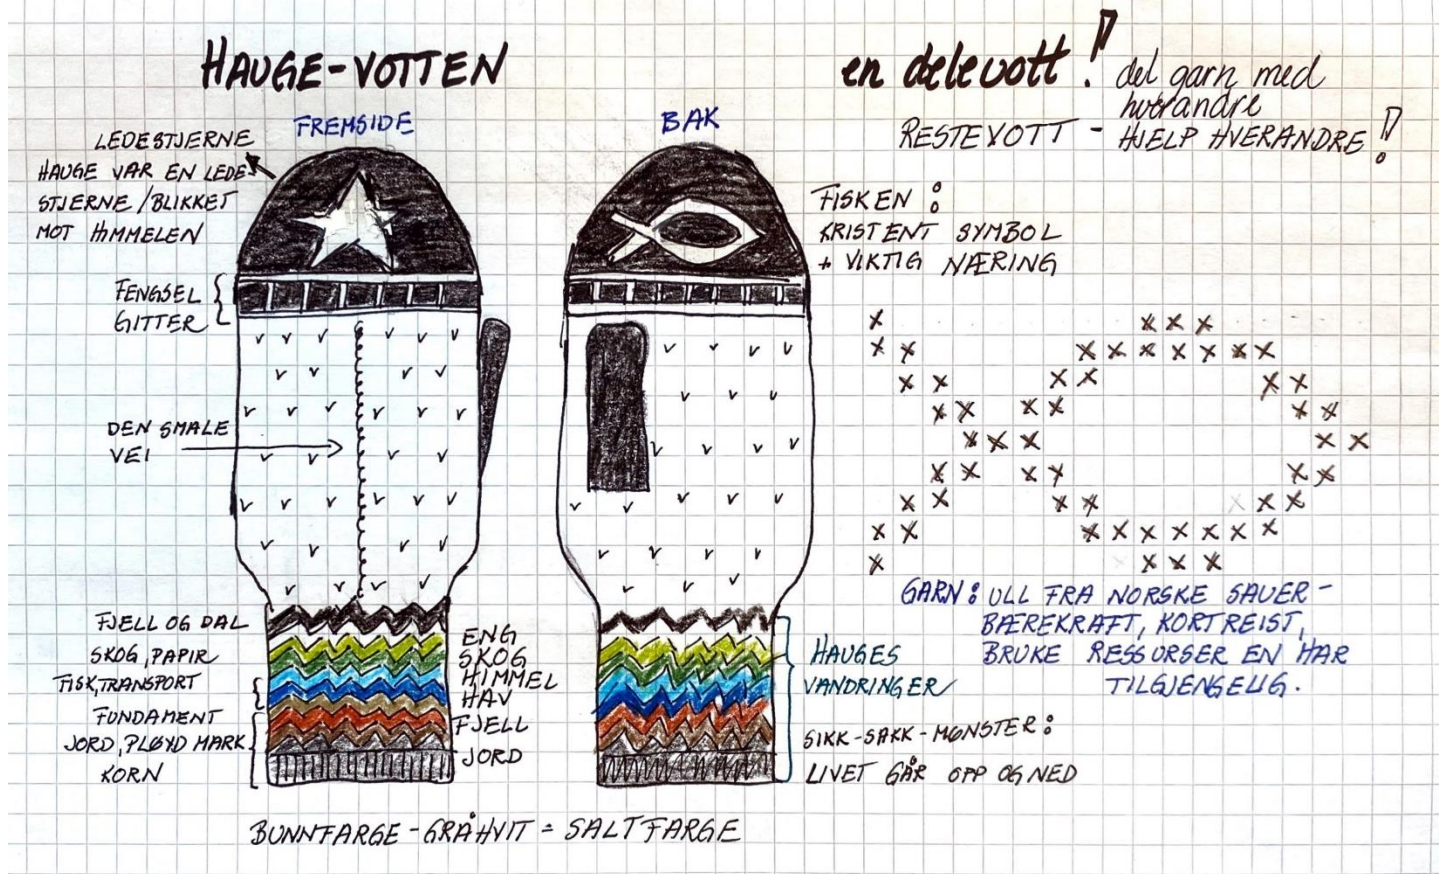 HAUGE-VOTTEN
en delevott!
del garn med
hverandre
RESTEVOTT - HJELP HVERANDRE!
FREMSIDE
BAK
LEDESTJERNE
HAUGE VAR EN LEDE-
STJERNE/BLIKKET
MOT HIMMELEN
FENGSEL
GITTER
DEN SMALE
VEI
FISKEN:
KRISTENT SYMBOL
+ VIKTIG NÆRING
FJELL OG DAL
SKOG, PAPIR
FISK, TRANSPORT
FUNDAMENT
JORD, PLØYD MARK
KORN
ENG
SKOG
HIMMEL
HAV
FJELL
JORD
HAUGES
VANDRINGER
SIKK-SAKK-MØNSTER:
LIVET GÅR OPP OG NED
GARN: ULL FRA NORSKE SAUER -
BÆREKRAFT, KORTREIST,
BRUKE RESSURSER EN HAR
TILGJENGELIG.
BUNNFARGE - GRÅHVIT = SALTFARGE